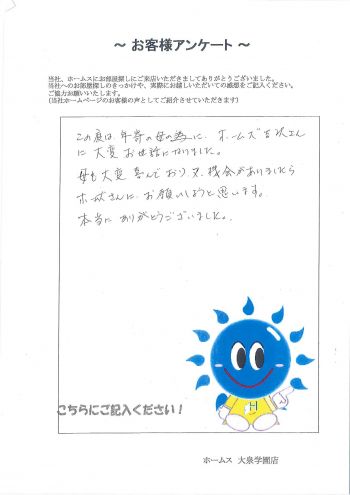 ～ お客様アンケート ～
当社、ホームスにお部屋探しにご来店いただきましてありがとうございました。
当社へのお部屋探しのきっかけや、実際にお越しいただいての感想をご記入ください。
ご協力お願いいたします。
(当社ホームページのお客様の声としてご紹介させていただきます)
この度は、年寄の母の為に、ホームズ
に大変お世話になりました。
母も大変喜んでおり、又、機会がありましたら
さんに、お願いしようと思います。
本当にありがとうございました。
H
こちらにご記入ください！
ホームス 大泉学園店